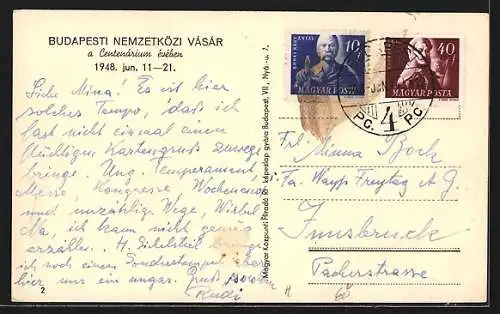 BUDAPESTI NEMZETKÖZI VÁSÁR
a Centenárium évében
1948. jun. 11—21.
Liebe Mina! Es ist hier
solches Tempo, daß ich
fast nicht einmal einen
flüchtigen Kartengruß zuwege
bringe. Ung. Temperament,
Messe, Kongresse, Wochenende
und unzählige Wege, Wirbel
Na, ich kann nicht genug
erzählen. H.
ich noch einen Sonderstempel
hier nur ein ungar. Gruß
Rudi
2
Magyar Központi Híradó Rt. képeslap gyára Budapest, VII., Nyá.-u. 7.
10
MAGYAR POSTA
40
MAGYAR POSTA
P.C. 4 P.C.
Frl. Minna Bock
Fa. Wayss Freytag A G.
Innsbruck
Pacherstrasse